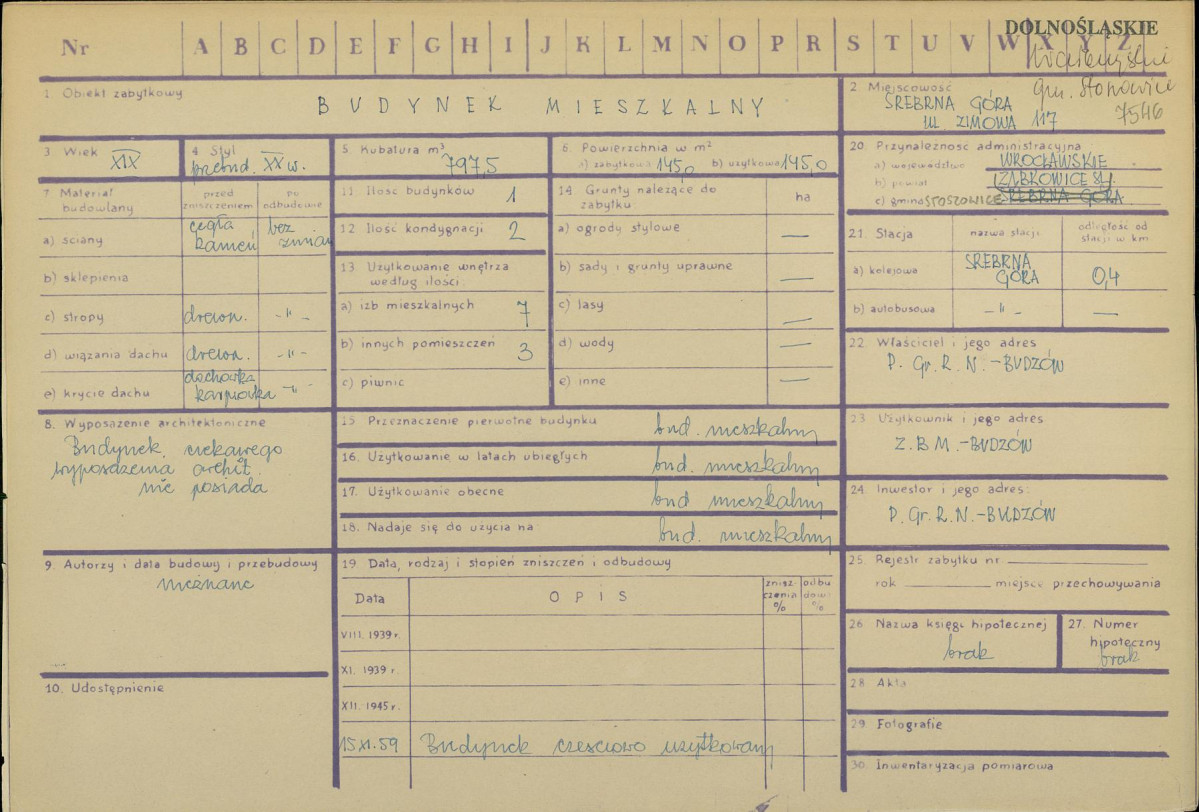 DOLNOŚLĄSKIE
Nr A B C D E F G H I J K L M N O P R S T U V W X Y Z
gm. Stoszowice
7546
1. Obiekt zabytkowy
BUDYNEK MIESZKALNY
2 Miejscowość
SREBRNA GÓRA
ul. ZIMOWA 117
3. Wiek
XIX
4. Styl
XX w.
5 Kubatura m³
797,5
6. Powierzchnia w m²
a) zabytkowa 145,0 b) użytkowa 145,0
20. Przynależność administracyjna
a) województwo WROCŁAWSKIE
b) powiat ZĄBKOWICE ŚL.
c) gmina STOSZOWICE SREBRNA GÓRA
7 Materiał budowlany
przed zniszczeniem
po odbudowie
a) ściany cegła kamień bez zmian
b) sklepienia
c) stropy drewn. -"-
d) wiązania dachu drewn. -"-
e) krycie dachu dachówka karpiówka -"-
11 Ilość budynków 1
12 Ilość kondygnacji 2
13 Użytkowanie wnętrza według ilości:
a) izb mieszkalnych 7
b) innych pomieszczeń 3
c) piwnic
14 Grunty należące do zabytku
ha
a) ogrody stylowe —
b) sady i grunty uprawne —
c) lasy —
d) wody —
e) inne —
21. Stacja
nazwa stacji
odległość od stacji w km
a) kolejowa SREBRNA GÓRA 0,4
b) autobusowa -"- —
22 Właściciel i jego adres
P. Gr. R. N. - BUDZÓW
8. Wyposażenie architektoniczne
Budynek ciekawego
wyposażenia archit.
nie posiada
15 Przeznaczenie pierwotne budynku bud. mieszkalny
16. Użytkowanie w latach ubiegłych bud. mieszkalny
17. Użytkowanie obecne bud mieszkalny
18. Nadaje się do użycia na bud. mieszkalny
23 Użytkownik i jego adres
Z. B. M. - BUDZÓW
24 Inwestor i jego adres:
P. Gr. R. N. - BUDZÓW
9. Autorzy i data budowy i przebudowy
nieznane
10. Udostępnienie
19 Data, rodzaj i stopień zniszczeń i odbudowy
Data
OPIS
zniszczenia %
odbudowi %
VIII. 1939 r.
XI. 1939 r.
XII. 1945 r.
15 XI. 59 Budynek częsciowo użytkowany
25. Rejestr zabytku nr
rok miejsce przechowywania
26 Nazwa księgi hipotecznej
brak
27. Numer hipoteczny
brak
28 Akta
29 Fotografie
30 Inwentaryzacja pomiarowa